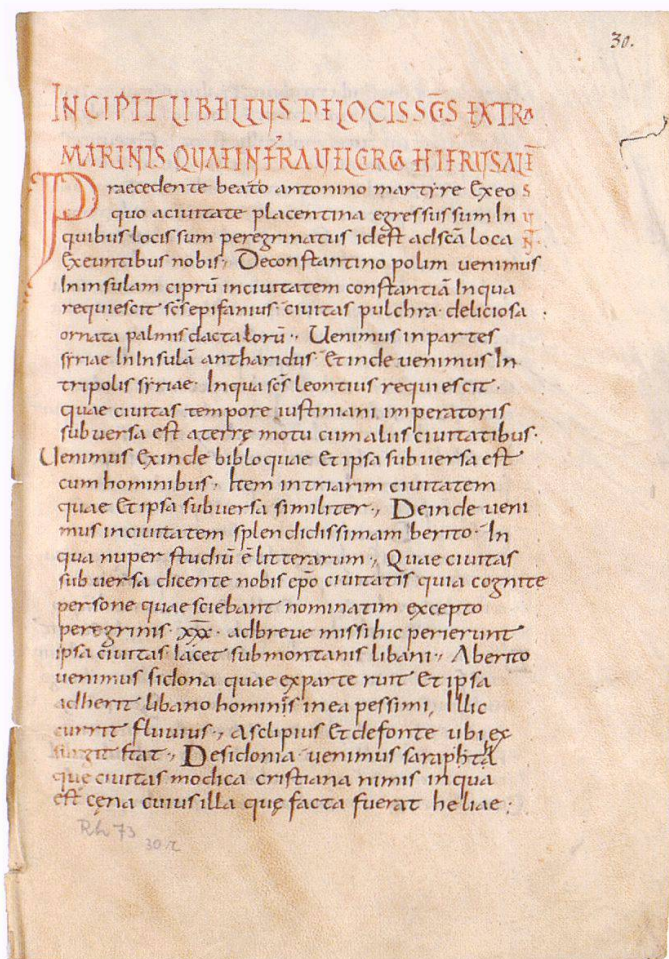 30.
INCIPIT LIBELLUS DE LOCIS SCS EXTRA
MARINIS QUAE INFRA VEL CIRCA HIERUSALE
Praecedente beato antonino martyre Exeo
quo acivitate placentina egressus sum In
quibus locis sum peregrinatus idest ad scā loca
Exeuntibus nobis, Deconstantino polim venimus
In insulam ciprū in civitatem constantiā In qua
requiescit scs epifanius civitas pulchra deliciosa
ornata palmis dactalorū, Uenimus in partes
syriae In Insulā antharidus Et inde venimus In
tripolis syriae In qua scs leontius requiescit.
quae civitas tempore iustiniani imperatoris
subversa est aterrę motu cum aliis civitatibus.
Uenimus Exinde biblo quae Et ipsa subversa est
cum hominibus. Item in triarim civitatem
quae Et ipsa subversa similiter, Deinde veni
mus in civitatem splendidissimam berito. In
qua nuper studiū ē litterarum, Quae civitas
subversa dicente nobis epo civitatis quia cognite
persone quae sciebant nominatim excepto
peregrinis xxx ad breve missi hic perierunt
ipsa civitas Iacet sub montanis libani, Aberito
venimus sidona quae ex parte ruit Et ipsa
adherit libano hominis in ea pessimi, Illic
currit fluvius, Asclipius Et de fonte ubi ex
surgit stat, Desidonia venimus saraphta
que civitas modica cristiana nimis in qua
est cęna cuius illa quę facta fuerat heliae.
Rh 73
30 r